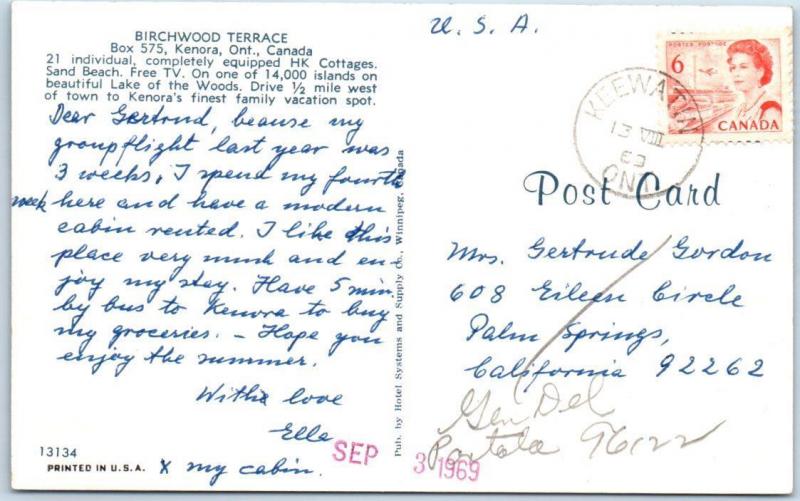 BIRCHWOOD TERRACE
Box 575, Kenora, Ont., Canada
21 individual, completely equipped HK Cottages.
Sand Beach. Free TV. On one of 14,000 islands on
beautiful Lake of the Woods. Drive ½ mile west
of town to Kenora's finest family vacation spot.
Dear Gertrud, beause my
groupflight last year was
3 weeks, I spend my fourth
week here and have a modern
cabin rented. I like this
place very much and en-
joy my stay. Have 5 min.
by bus to Kenora to buy
my groceries. – Hope you
enjoy the summer.
With love
Ella
x my cabin.
13134
PRINTED IN U.S.A.
Pub. by Hotel Systems and Supply Co., Winnipeg, Canada
U. S. A.
POSTES POSTAGE
6
CANADA
KEEWATIN
13 VIII
69
ONT.
Post Card
Mrs. Gertrude Gordon
608 Eileen Circle
Palm Springs,
California 92262
Gen Del
Portola 96122
SEP 3 1969